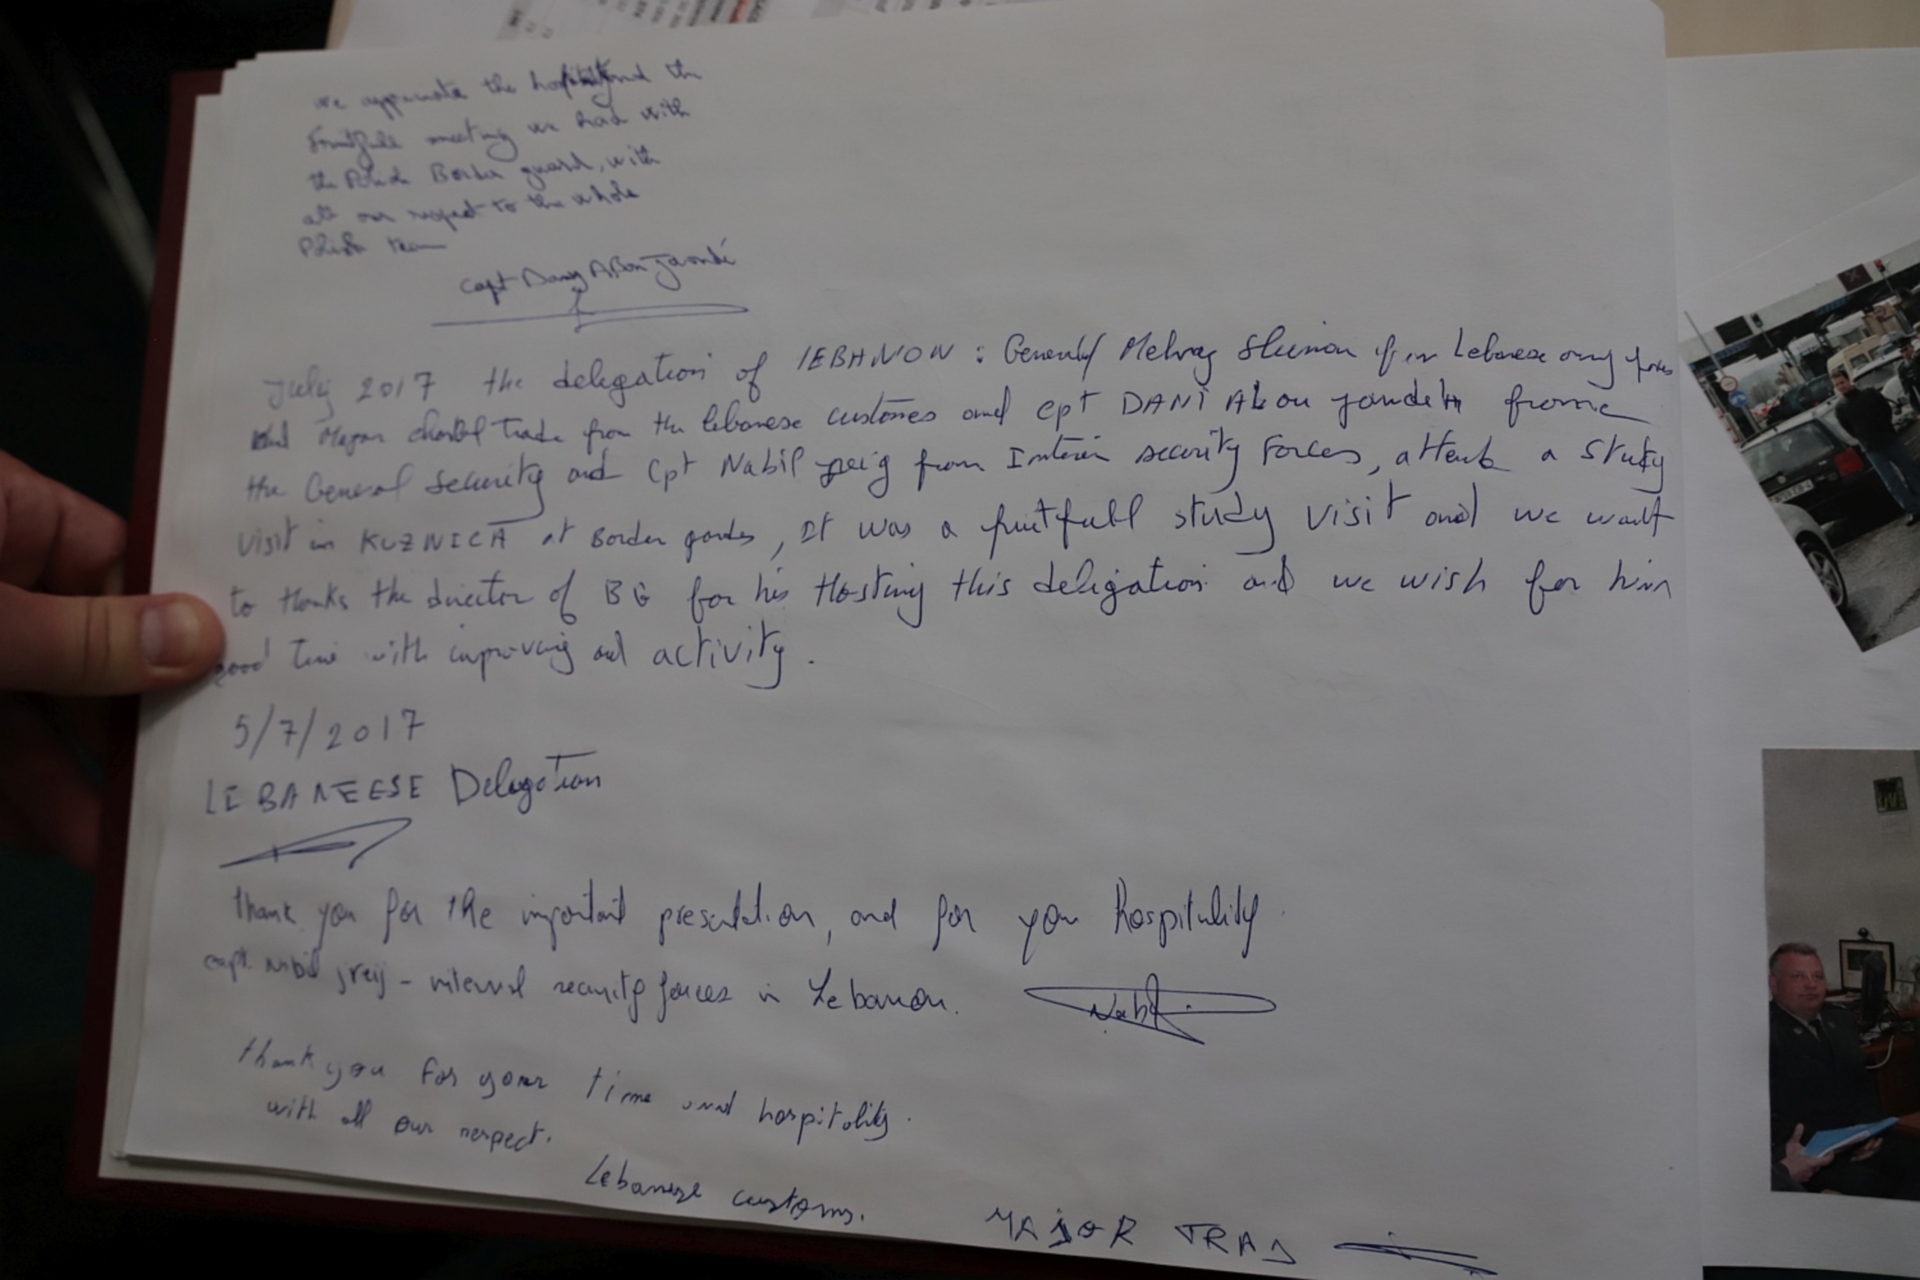 we appreciate the hospitality and the
fruitfull meeting we had with
the Polish Border guard, with
all our respect to the whole
Polish team
Capt Dany Abou Jaoudé
July 2017 the delegation of LEBANON : General Sleiman Lebanese army forces
and Major charbel Trade from the lebanese customes and cpt DANI Abou jaudeh frome
the General Security and Cpt Nabil jreig from Interin security Forces, attend a study
visit in KUZNICA at Border gardes, It was a fruitfull study visit and we want
to thanks the director of BG for his Hosting this deligation and we wish for him
good time with improving and activity.
5/7/2017
LEBANEESE Delegation
thank you for the important presentation, and for your hospitality.
capt. Nabil jreij - internal security forces in Lebanon.
Nabil
thank you for your time and hospitality.
with all our respect.
Lebanese customs.
MAJOR TRAD